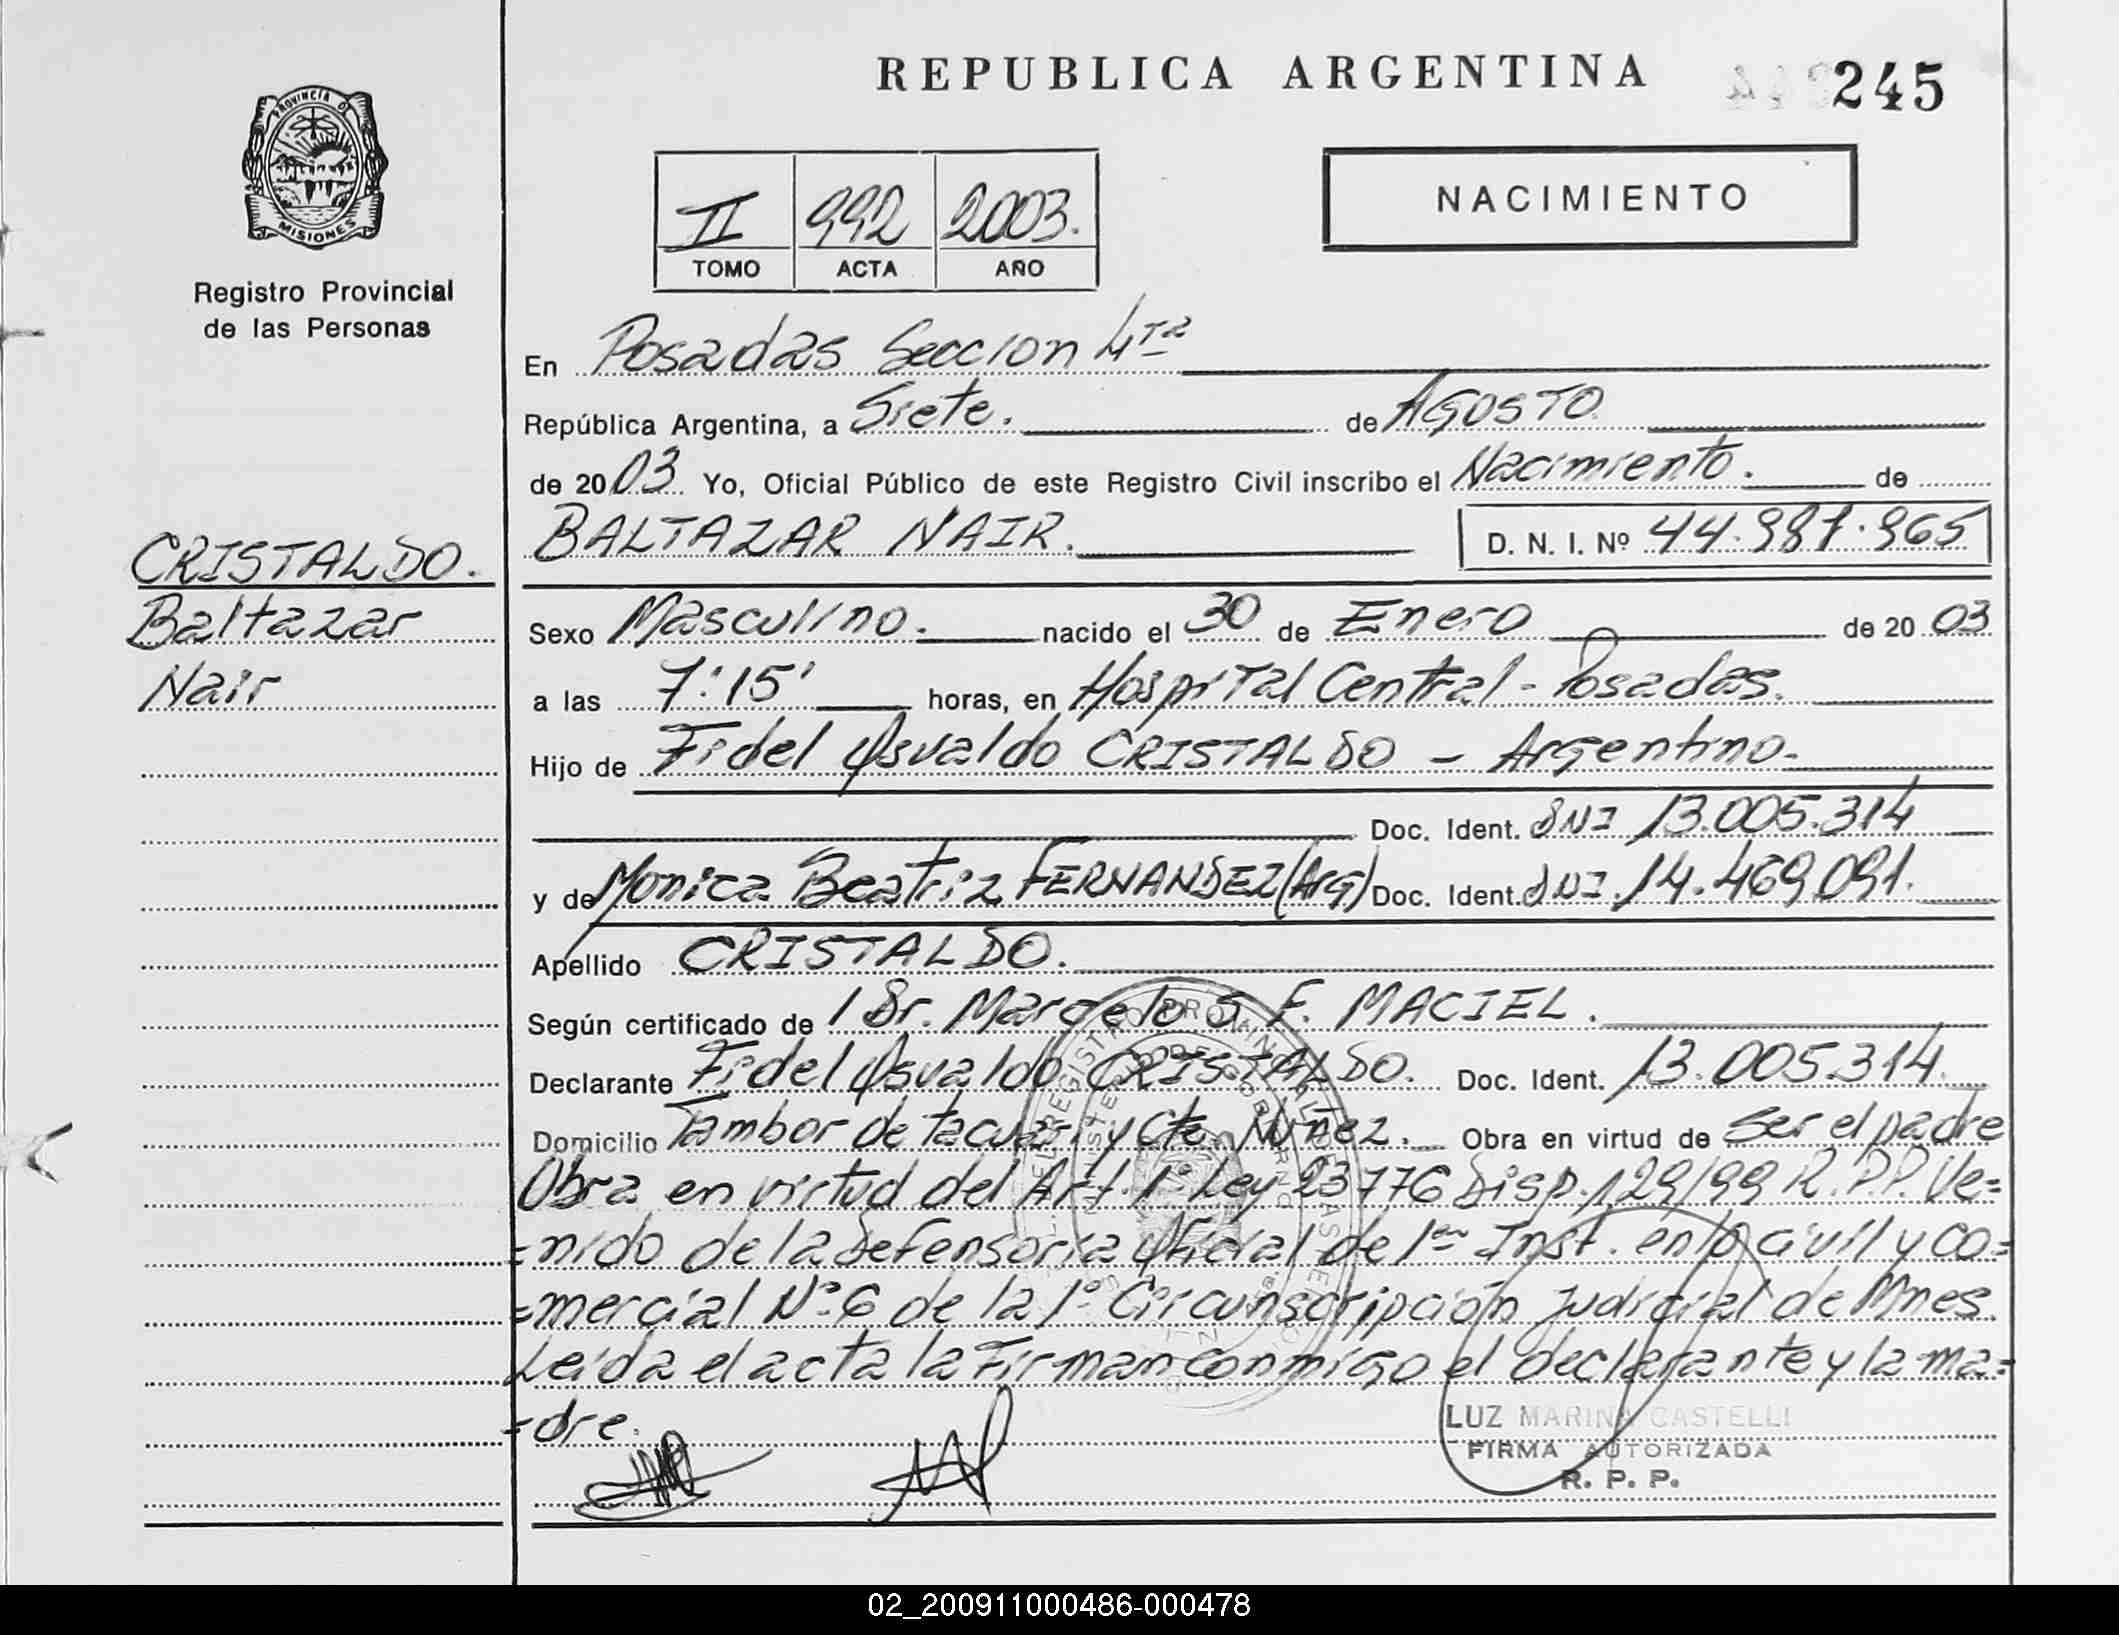 REPUBLICA ARGENTINA
245
PROVINCIA D
MISIONES
Registro Provincial
de las Personas
II 992 2003.
TOMO ACTA AÑO
NACIMIENTO
En Posadas Seccion 4ta
República Argentina, a Siete. de AGOSTO
de 2003 Yo, Oficial Público de este Registro Civil inscribo el Nacimiento. de
BALTAZAR NAIR. D. N. I. Nº 44.987.965
CRISTALDO.
Baltazar
Nair
Sexo Masculino. nacido el 30 de Enero de 2003
a las 7:15' horas, en Hospital Central - Posadas.
Hijo de Fidel Osvaldo CRISTALDO - Argentino.
Doc. Ident. DNI 13.005.314
y de Monica Beatriz FERNANDEZ (Arg) Doc. Ident. DNI 14.469.091.
Apellido CRISTALDO.
Según certificado de / Dr. Marcelo G F. MACIEL.
Declarante Fidel Osvaldo CRISTALDO. Doc. Ident. 13.005.314.
Domicilio Tambor de tacuari y Cte. Nuñez. Obra en virtud de ser el padre
Obra en virtud del Art. 1º Ley 23776 Disp. 129/99 R.P.P. Ve=
=nido de la defensoria Oficial de 1era Inst. en lo civil y co=
=mercial Nº 6 de la 1º Circunscripción Judicial de Mnes.
Leida el acta la Firman conmigo el declarante y la ma=
=dre.
LUZ MARINA CASTELLI
FIRMA AUTORIZADA
R. P. P.
02_200911000486-000478